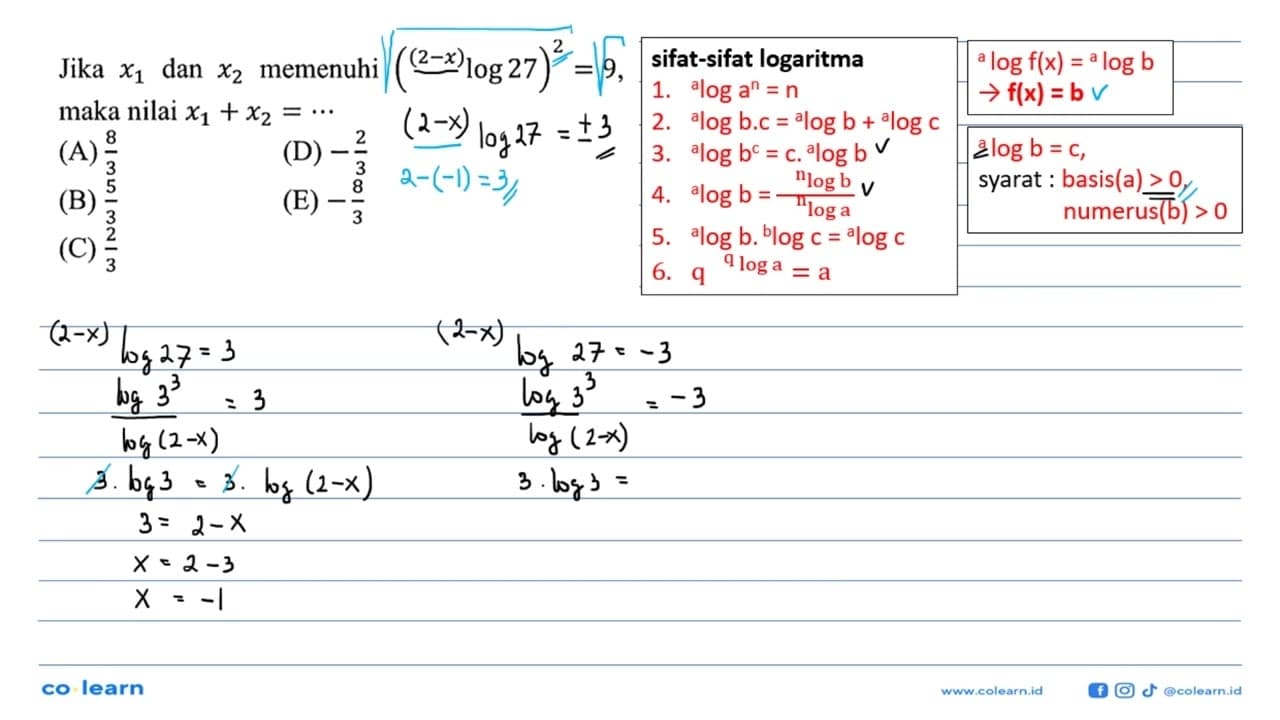 Jika x₁ dan x₂ memenuhi √((⁽²⁻ˣ⁾log 27)²) = √9,
maka nilai x₁ + x₂ = ⋯
(A) 8/3 (D) −2/3
(B) 5/3 (E) −8/3
(C) 2/3
(2-x) log 27 = ± 3
2-(-1) = 3
sifat-sifat logaritma
1. ᵃlog aⁿ = n
2. ᵃlog b.c = ᵃlog b + ᵃlog c
3. ᵃlog bᶜ = c. ᵃlog b ✓
4. ᵃlog b = ⁿlog b / ⁿlog a ✓
5. ᵃlog b. ᵇlog c = ᵃlog c
6. q^(q log a) = a
ᵃlog f(x) = ᵃlog b
→ f(x) = b ✓
ᵃlog b = c,
syarat : basis(a) > 0,
numerus(b) > 0
(2-x) log 27 = 3
log 3³ / log (2-x) = 3
3. log 3 = 3. log (2-x)
3 = 2 - x
x = 2 - 3
x = -1
(2-x) log 27 = -3
log 3³ / log (2-x) = -3
3 . log 3 =
co learn
www.colearn.id
@colearn.id